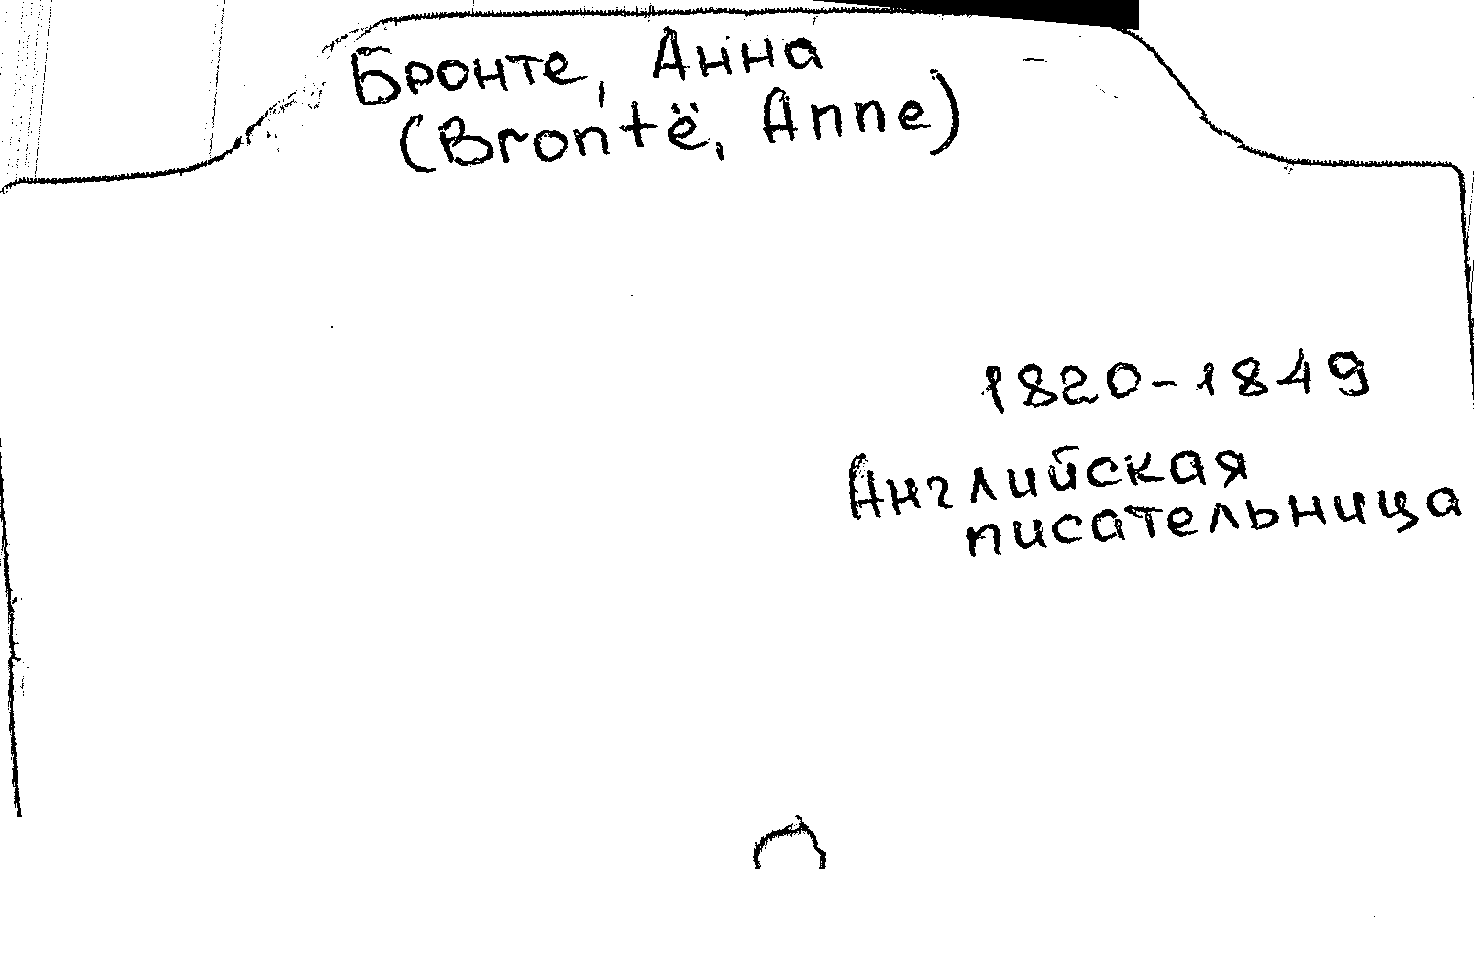 Бронте, Анна
(Brontë, Anne)
1820-1849
Английская
писательница